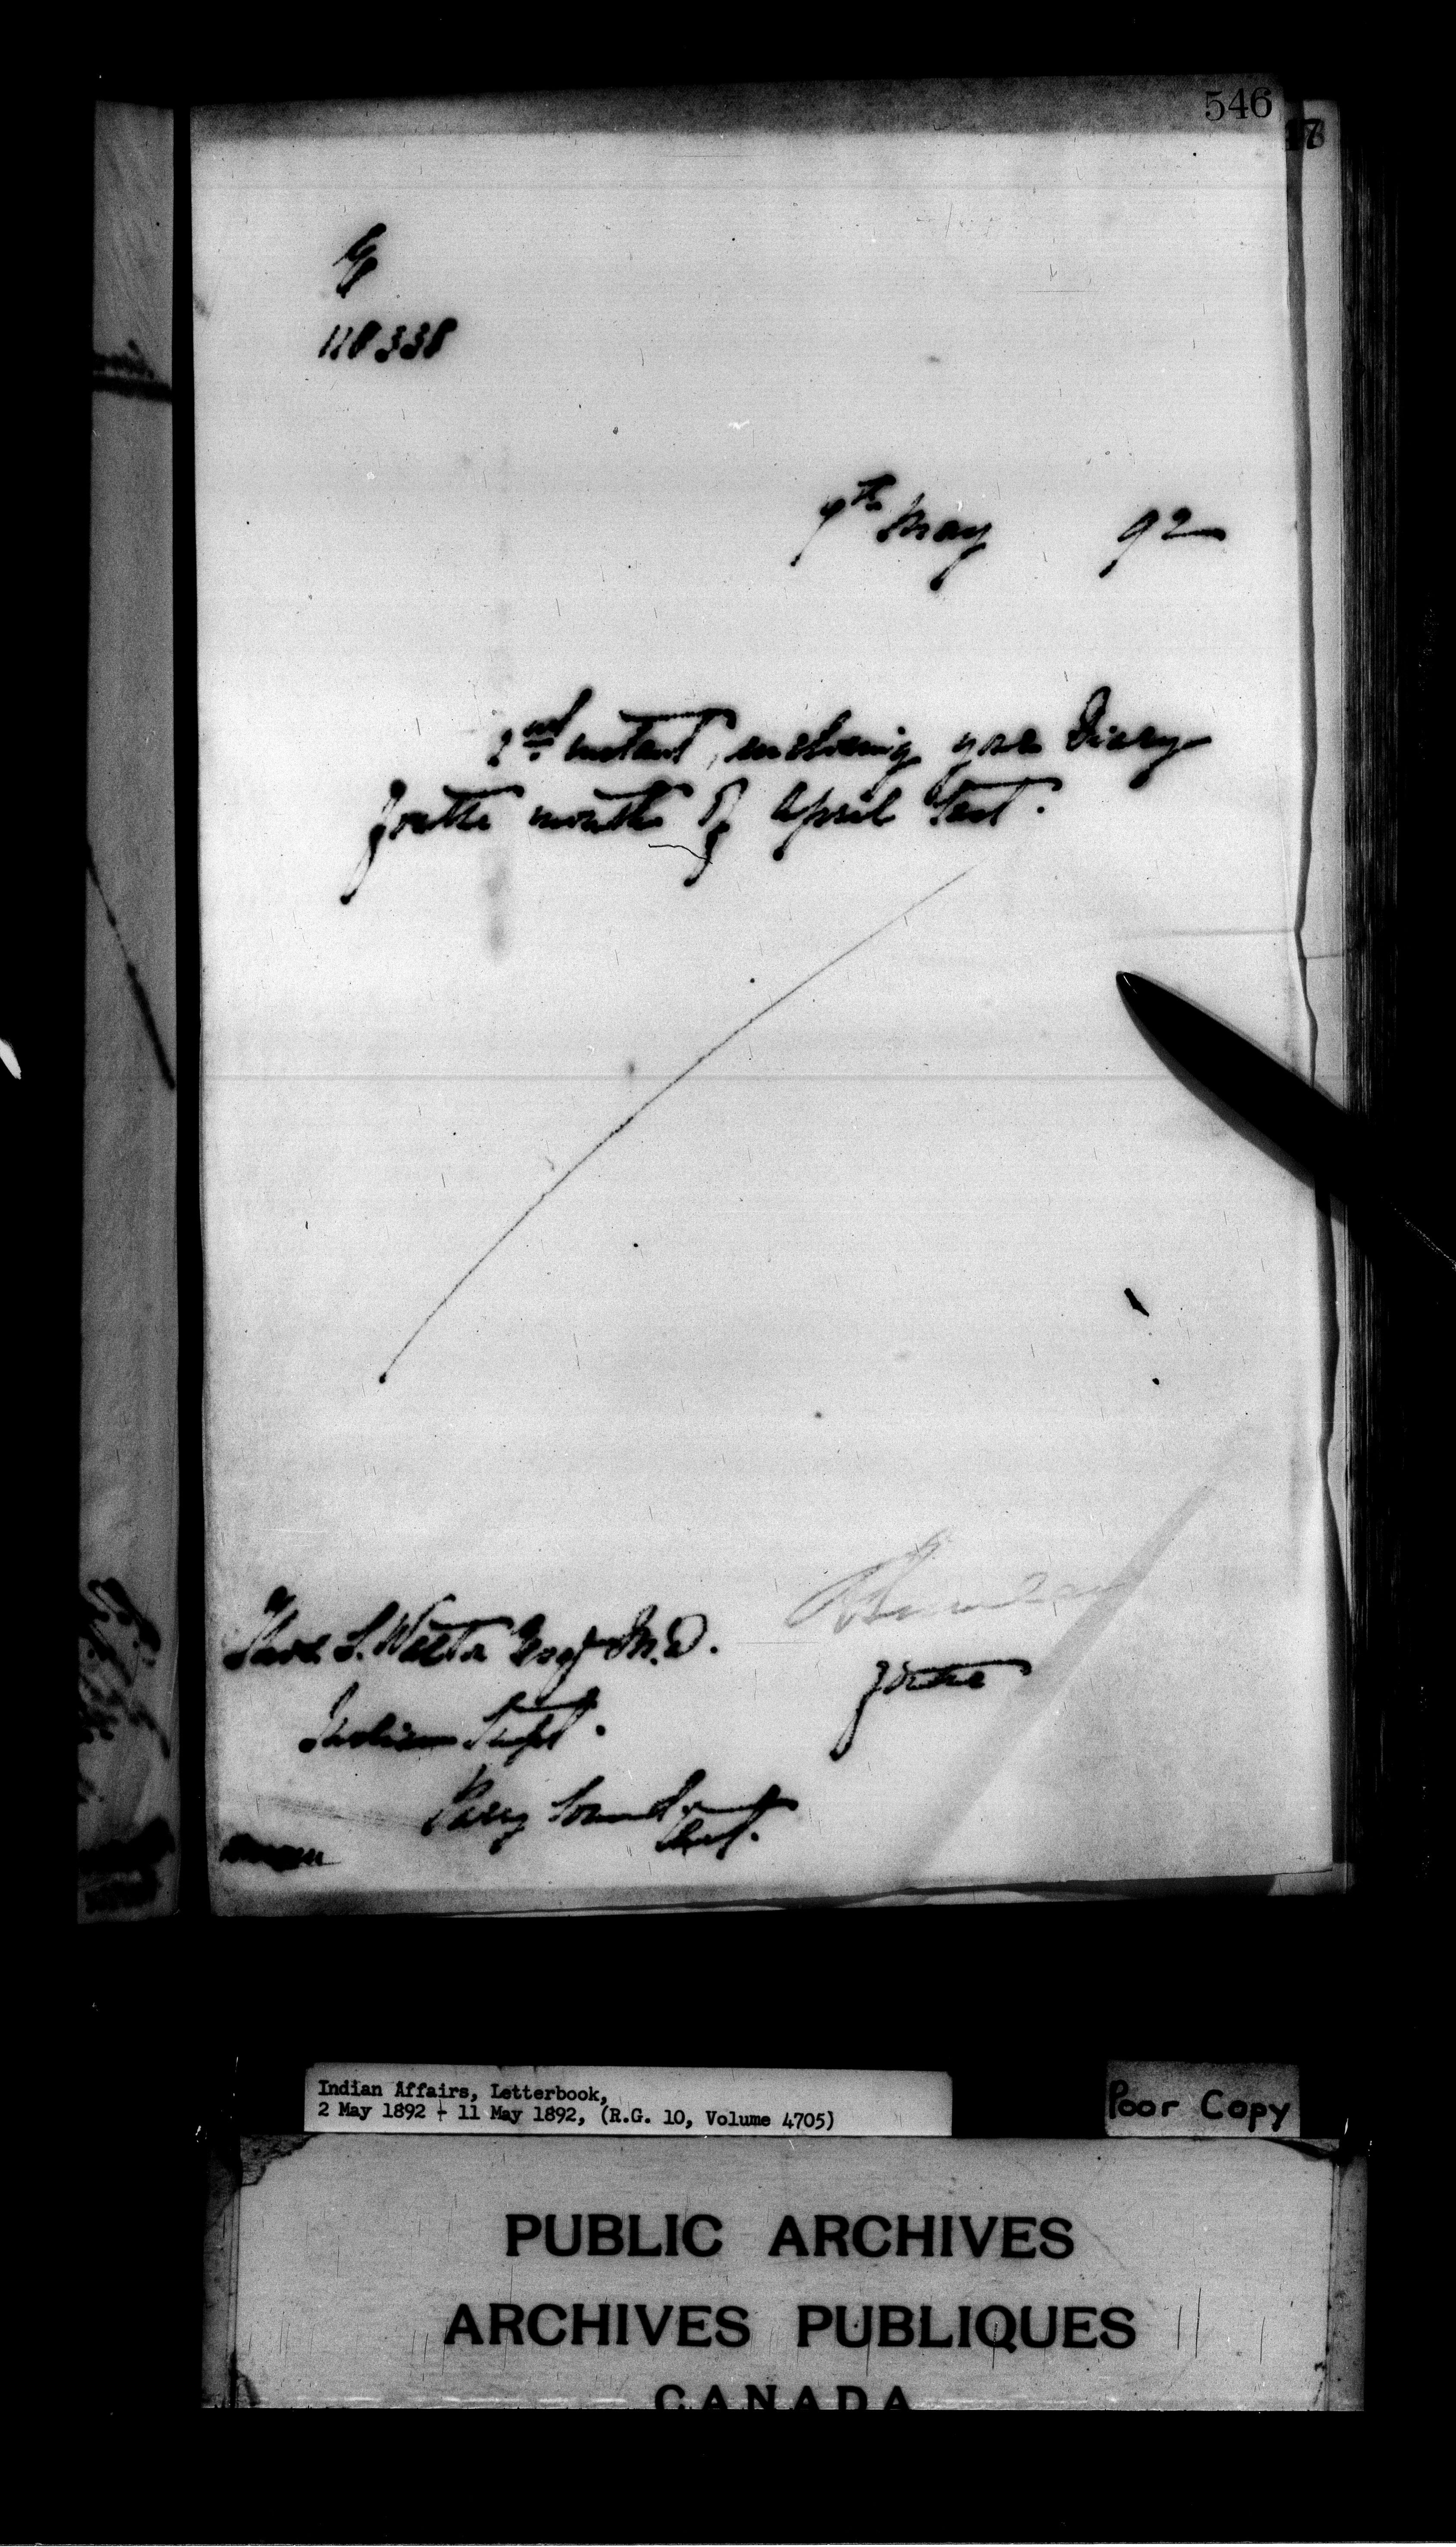 546
118338
9th May 92
2nd instant, enclosing your Diary
for the month of April last.
Thos. S. Walton Esq M.D.
for the
Indian Supt.
Parry Sound
Ont.
Indian Affairs, Letterbook,
2 May 1892 - 11 May 1892, (R.G. 10, Volume 4705)
Poor Copy
PUBLIC ARCHIVES
ARCHIVES PUBLIQUES
CANADA